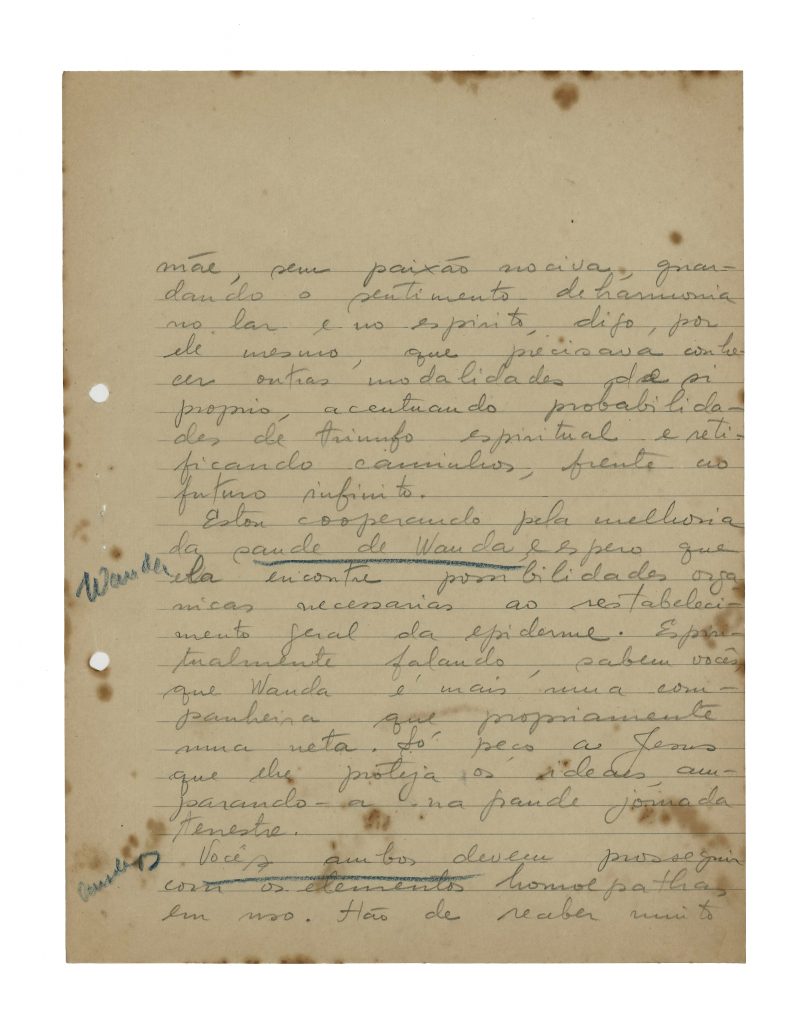 mãe, sem paixão nociva, guar-
dando o sentimento de harmonia
no lar e no espirito, digo, por
ele mesmo, que precisava conhe-
cer outras modalidades de si
proprio, acentuando probabilida-
des de triunfo espiritual e reti-
ficando caminhos, frente ao
futuro infinito.
Estou cooperando pela melhoria
da saude de Wanda, e espero que
Wanda
ela encontre possibilidades orga
nicas necessarias ao restabeleci-
mento geral da epiderme. Espiri-
tualmente falando, sabem vocês,
que Wanda é mais uma com-
panheira que propriamente
uma neta. Só peço a Jesus
que lhe proteja os ideais, am-
parando-a na grande jórnada
terrestre.
Vocês ambos devem prosseguir
com os elementos homoepathas
em uso. Hão de receber muito